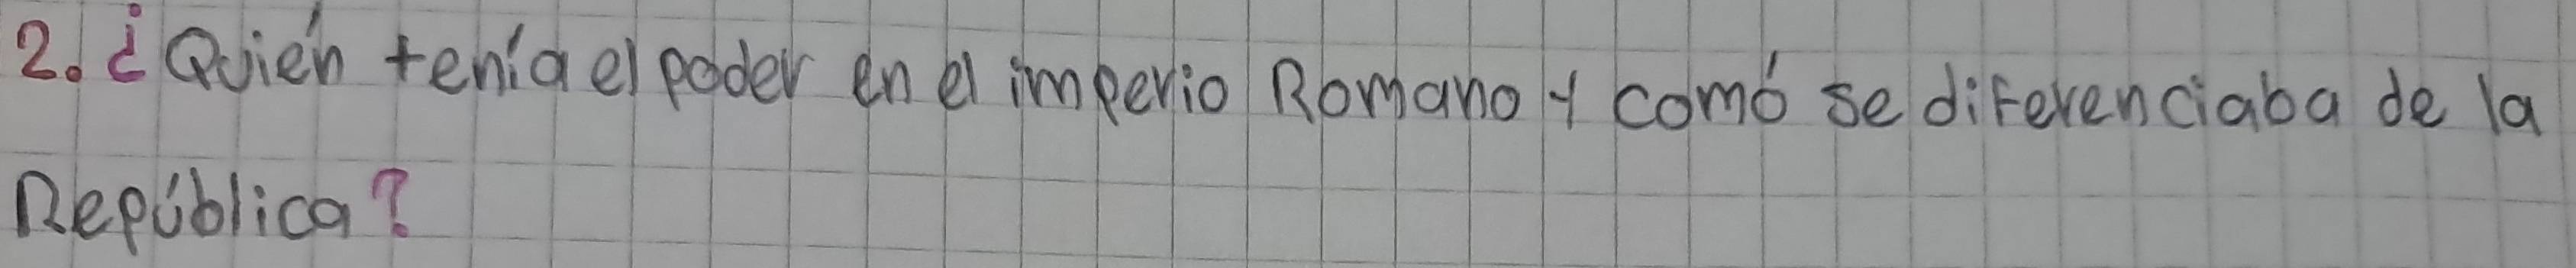 2. ¿Quién tenía el poder en el imperio Romano y comó se diferenciaba de la
República?